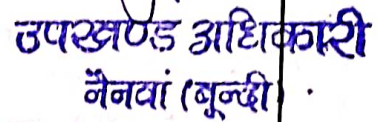 उपखण्ड अधिकारी
नैनवां (बून्दी) .